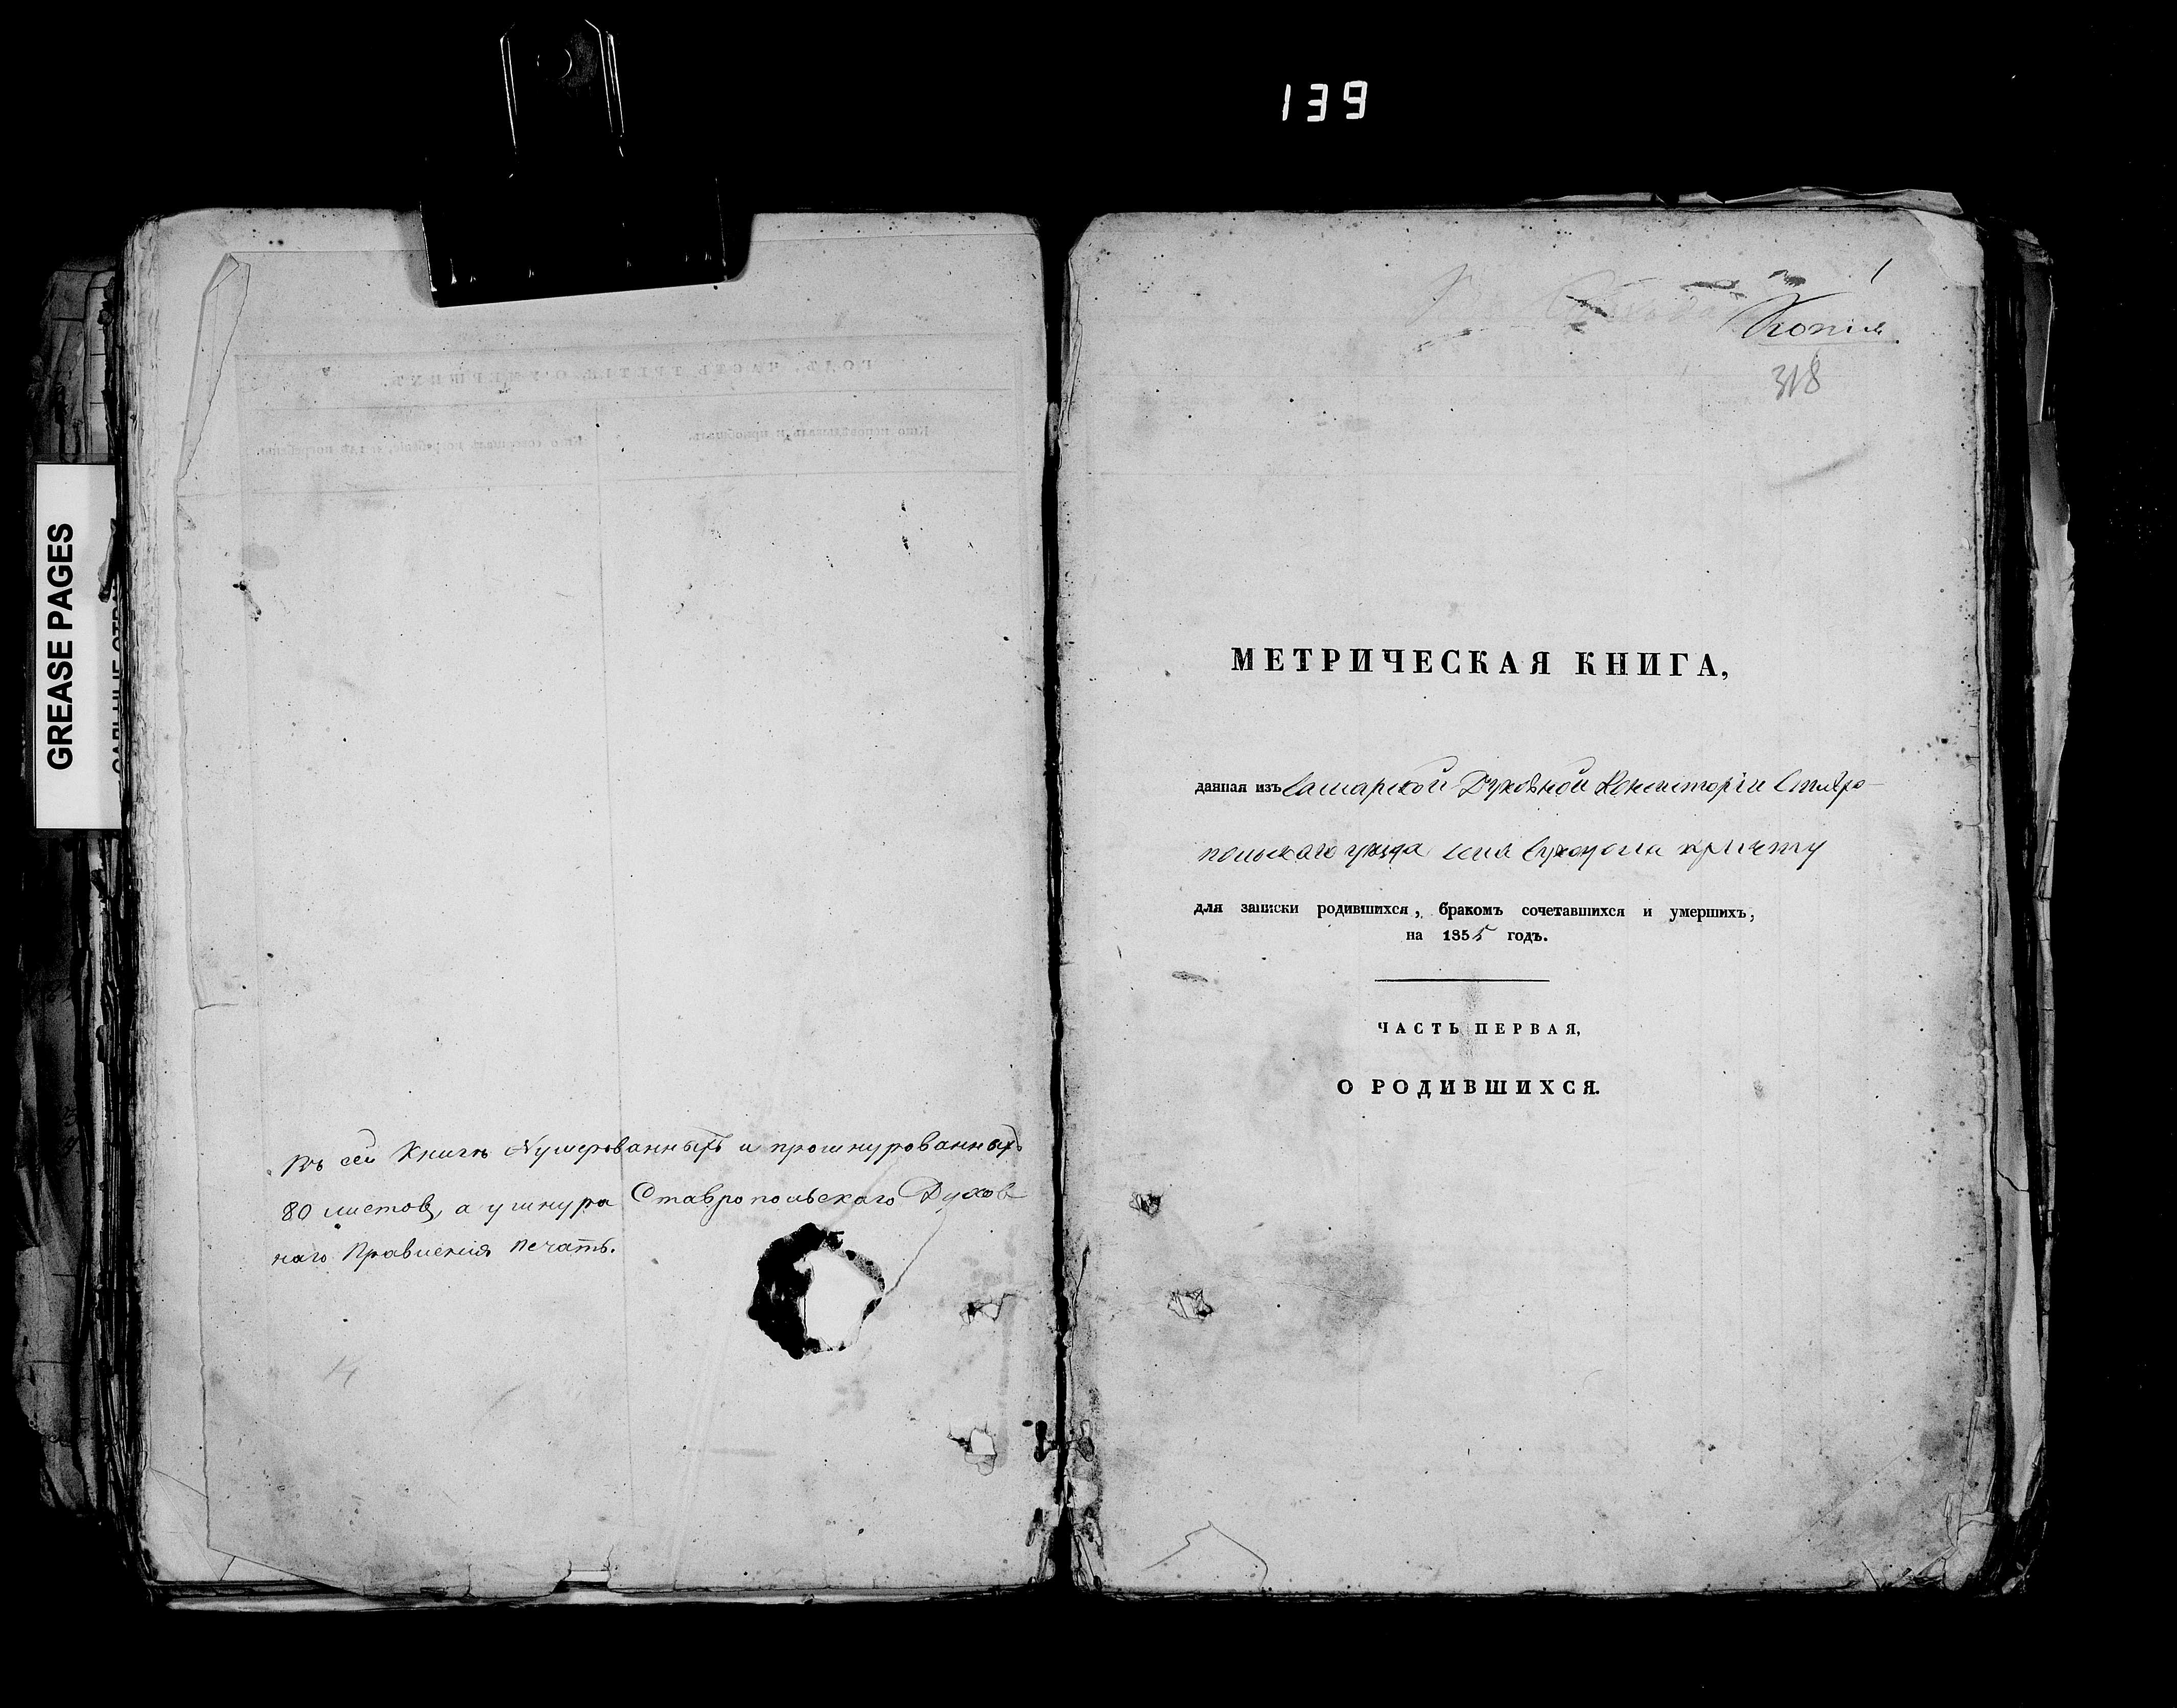 139
GREASE PAGES
Въ сей Книгѣ Нумерованныхъ и прошнурованныхъ
80 листовъ, а у шнура Ставропольскаго Духов
наго Правленія печать.
1
Копія
318
МЕТРИЧЕСКАЯ КНИГА,
данная изъ Самарской Духовной Консисторіи Ставро-
польскаго уѣзда села причту
для записки родившихся, бракомъ сочетавшихся и умершихъ,
на 1855 годъ.
ЧАСТЬ ПЕРВАЯ,
О РОДИВШИХСЯ.